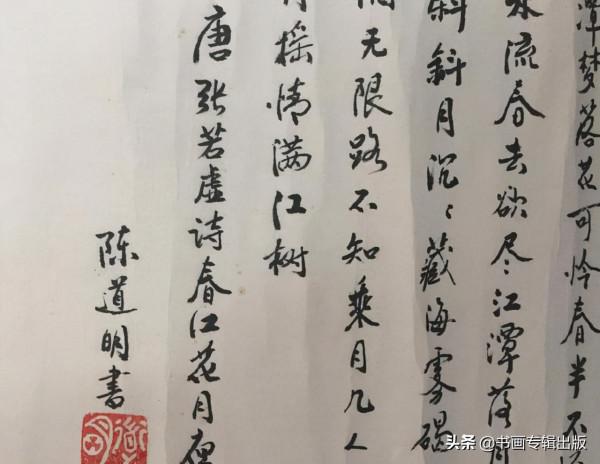 潭梦落花可怜春半不
水流春去欲尽江潭落月
斜斜月沉〻藏海雾碣
无限路不知乘月几人
摇情满江树
唐张若虚诗春江花月夜
陈道明书
头条 @书画专辑出版